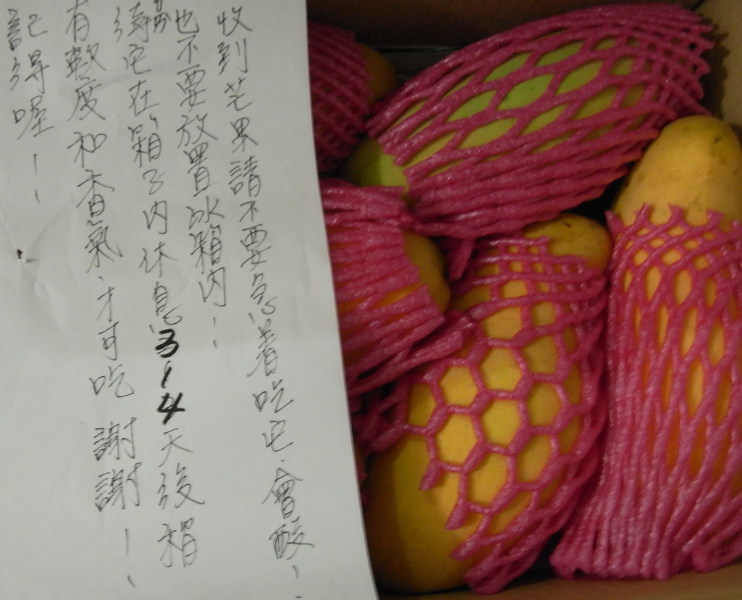 收到芒果請不要急著吃它.會酸!.
也不要放置冰箱內!
它在箱子內休息3,4天後稍
有軟度和香氣.才可吃 謝謝!!
記得喔!!